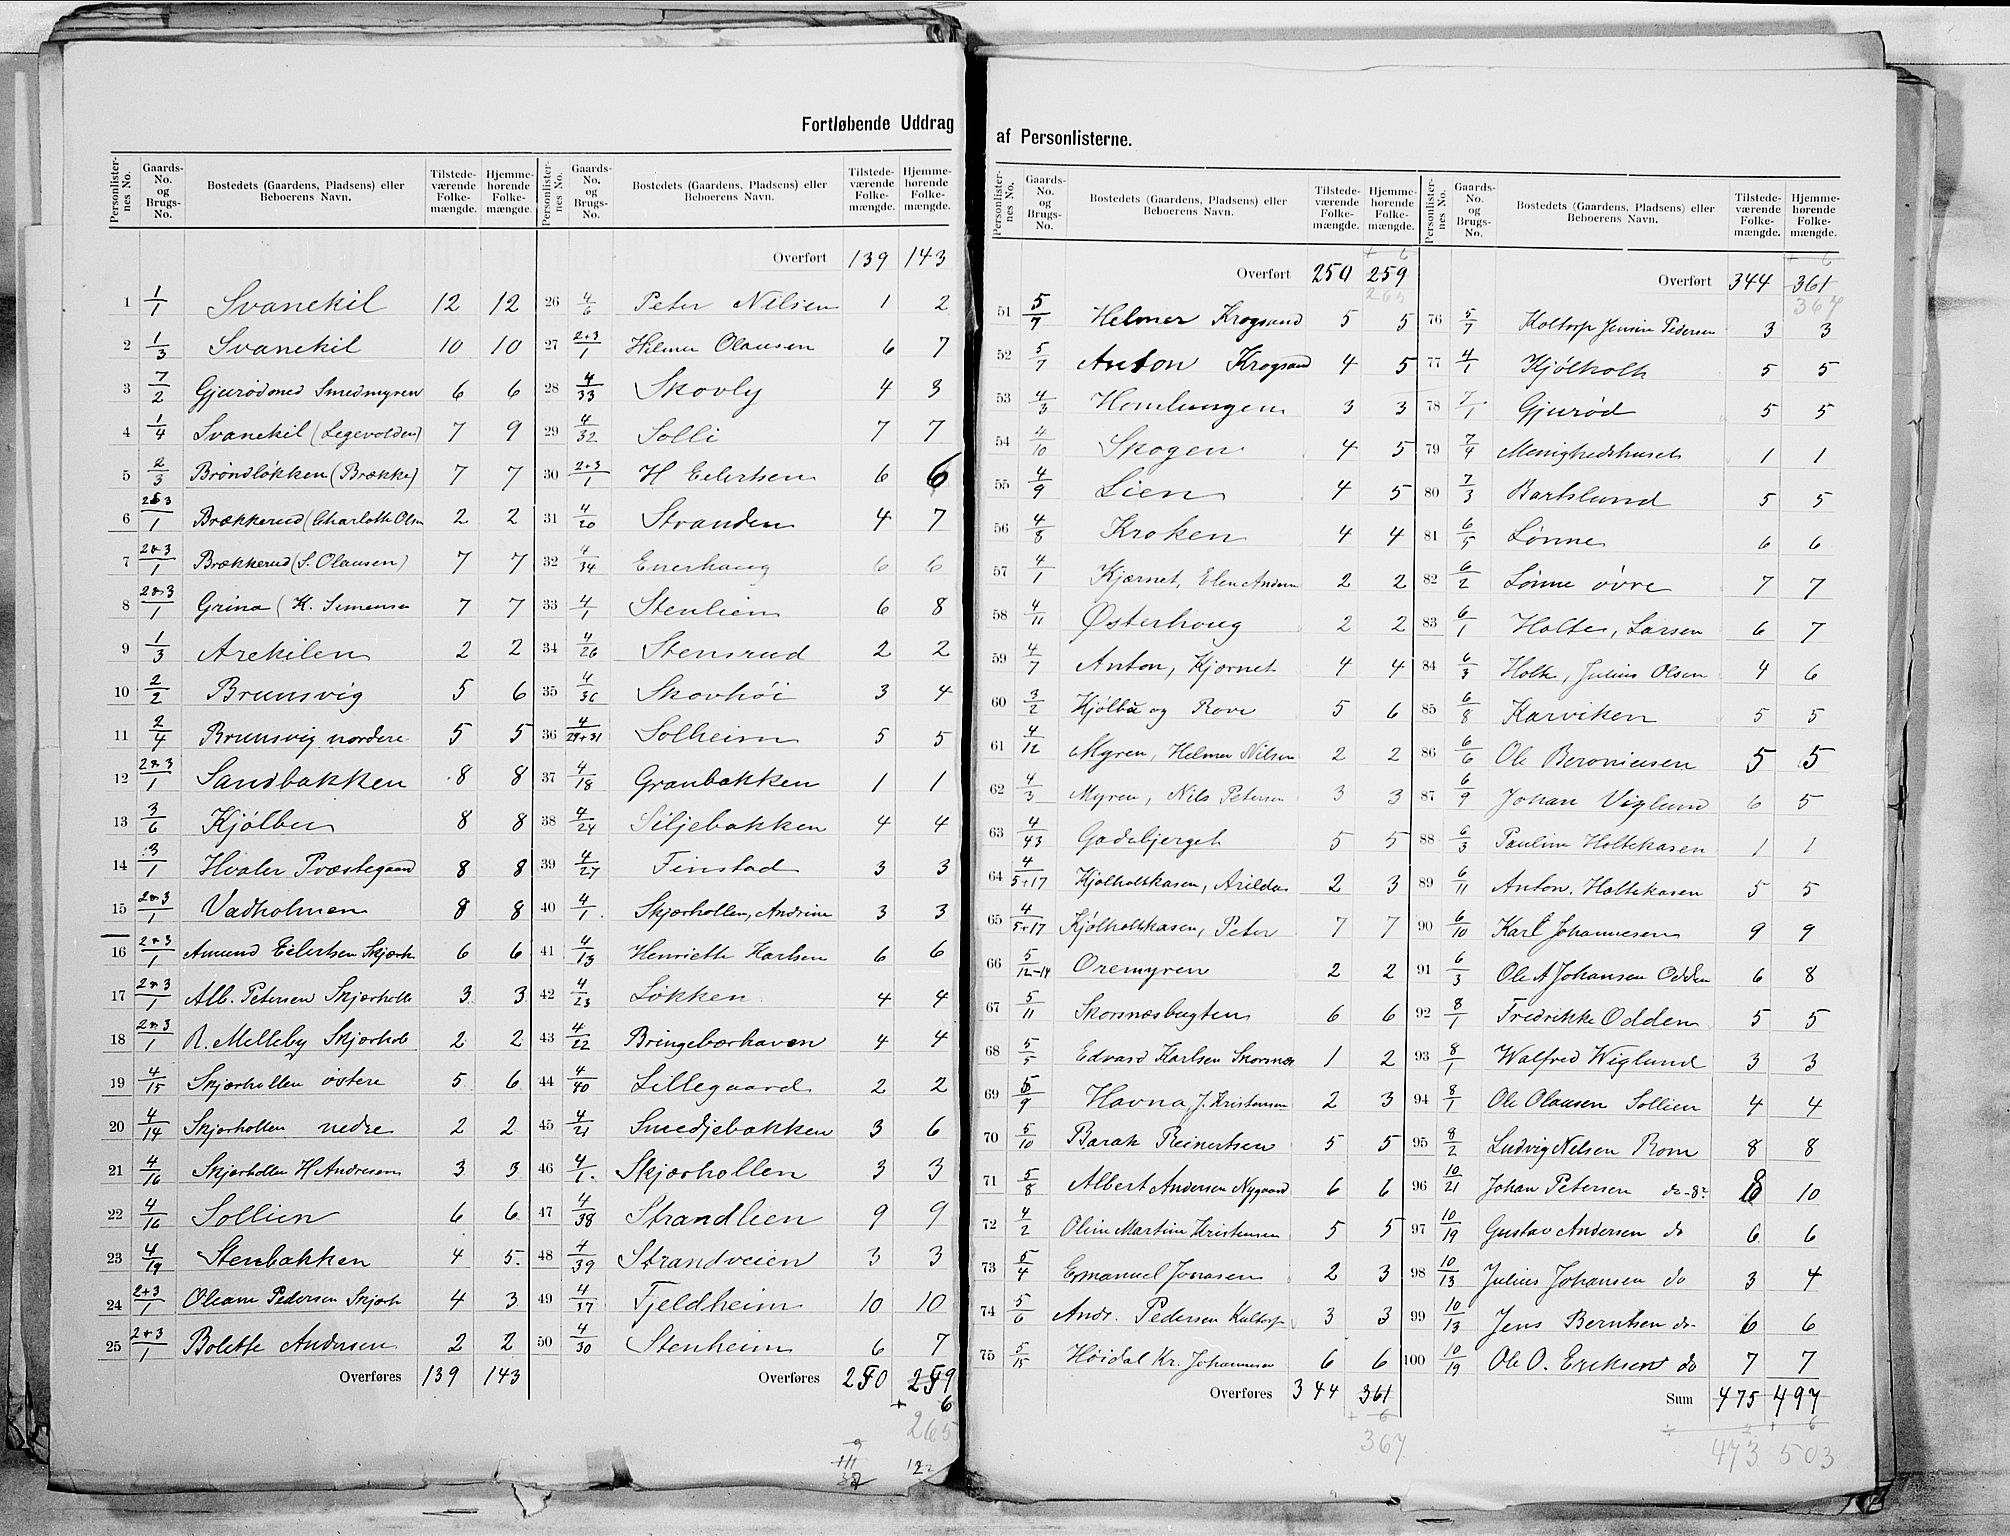 Fortløbende Uddrag af Personlisternes.
Personlister-nes No. | Gaards-No. og Brugs-No. | Bostedets (Gaardens, Pladsens) eller Beboerens Navn. | Tilstede-værende Folke-mængde. | Hjemme-hørende Folke-mængde.
1 1/1 Svanekil 12 12
2 1/3 Svanekil 10 10
3 7/2 Gjurødned Smedmyren 6 6
4 1/4 Svanekil (Legevolden) 7 9
5 2/3 Brøndløkken (Brække) 7 7
6 2&3/1 Brækkerud (Charlotte Olsn 2 2
7 2&3/1 Brækkerud (S. Olausen) 7 7
8 2&3/1 Grina (K. Simensen 7 7
9 1/3 Arekilen 2 2
10 2/2 Brunsvig 5 6
11 2/4 Brunsvig nordere 5 5
12 2&3/1 Sandbakken 8 8
13 3/6 Kjølbu 8 8
14 3/1 Hvaler Præstegaard 8 8
15 2&3/1 Vadholmen 8 8
16 2+3/1 Amund Eilertsen Skjærh 6 6
17 2&3/1 Alb. Petersen Skjærholle 3 3
18 2&3/1 R. Melleby Skjærhol 2 2
19 4/15 Skjærhollen østere 5 6
20 4/14 Skjærhollen nedre 2 2
21 4/16 Skjærhollen H Andresen 3 3
22 4/16 Sollien 6 6
23 4/19 Stenbakken 4 5
24 2+3/1 Oleane Pedersen Skjærh 4 3
25 2+3/1 Bolette Andersen 2 2
Overføres 139 143
Personlister-nes No. | Gaards-No. og Brugs-No. | Bostedets (Gaardens, Pladsens) eller Beboerens Navn. | Tilstede-værende Folke-mængde. | Hjemme-hørende Folke-mængde.
Overført 139 143
26 4/6 Peter Nilsen 1 2
27 2+3/1 Hilmer Olausen 6 7
28 4/33 Skovly 4 3
29 4/32 Solli 7 7
30 2+3/1 H Eilertsen 6 6
31 4/20 Stranden 4 7
32 4/34 Enerhaug 6 6
33 4/1 Stenlien 6 8
34 4/26 Stensrud 2 2
35 4/36 Skovhøi 3 4
36 4/29+31 Solheim 5 5
37 4/18 Granbakken 1 1
38 4/24 Siljebakken 4 4
39 4/27 Finstad 3 3
40 4/1 Skjærhollen, Andrine 3 3
41 4/13 Henriette Karlsen 6 6
42 4/23 Løkken 4 4
43 4/22 Bringebærhaven 4 4
44 4/40 Lillegaard 2 2
45 4/21 Smedjebakken 3 6
46 4/1 Skjærhollen 3 3
47 4/38 Strandlien 9 9
48 4/39 Strandveien 3 3
49 4/37 Fjeldheim 10 10
50 4/30 Stenheim 6 7
Overføres 250 259
+ 6
265
9
111
12
Personlister-nes No. | Gaards-No. og Brugs-No. | Bostedets (Gaardens, Pladsens) eller Beboerens Navn. | Tilstede-værende Folke-mængde. | Hjemme-hørende Folke-mængde.
+ 6
Overført 250 259
265
51 5/7 Helmer Krogsand 5 5
52 5/7 Anton Krogsand 4 5
53 4/3 Homlungen 3 3
54 4/10 Skogen 4 5
55 4/9 Lien 4 5
56 4/8 Kroken 4 4
57 4/1 Kjærnet, Elen Andersn 2 2
58 4/11 Østerhoug 2 2
59 4/7 Anton, Kjærnet 4 4
60 3/2 Kjølbu og Rove 5 6
61 4/12 Myren, Helmer Nilsen 2 2
62 4/3 Myren, Nils Petersen 3 3
63 4/43 Gadebjerget 5 5
64 4/5+17 Kjølholtkasen, Arildas 2 3
65 4/5+17 Kjølholtkasen, Peter 7 7
66 5/12-14 Oremyren 2 2
67 5/11 Skorsnæsbugten 6 6
68 5/5 Edvard Karlsen Skorsnæs 1 2
69 5/9 Havna, J. Kristensen 2 3
70 5/10 Barak Reinertsen 5 5
71 5/8 Albert Andersen Nygaard 6 6
72 4/2 Oline Martine Kristensen 5 5
73 5/4 Emanuel Jonasen 2 3
74 5/6 Andr. Pedersen Koltorp 3 3
75 5/15 Høidal Kr. Johannesen 6 6
Overføres 344 361
+ 6
367
Personlister-nes No. | Gaards-No. og Brugs-No. | Bostedets (Gaardens, Pladsens) eller Beboerens Navn. | Tilstede-værende Folke-mængde. | Hjemme-hørende Folke-mængde.
+ 6
Overført 344 361
367
76 5/7 Koltorp Jensine Pedersen 3 3
77 4/1 Kjølholt 5 5
78 7/1 Gjurød 5 5
79 7/4 Menighedshuset 1 1
80 7/3 Bartslund 5 5
81 6/5 Lønne 6 6
82 6/2 Lønne øvre 7 7
83 6/1 Holte, Larsen 6 7
84 6/3 Holte, Julius Olsen 4 6
85 6/8 Karviken 5 5
86 6/6 Ole Beroniusen 5 5
87 6/9 Johan Viglund 6 5
88 6/3 Pauline Holtekasen 1 1
89 6/11 Anton. Holtekasen 5 5
90 6/10 Karl Johannesen 9 9
91 6/3 Ole A Johansen Odden 6 8
92 8/1 Fredrikke Odden 5 5
93 8/1 Walfred Wiglund 3 3
94 8/1 Ole Olausen Sollien 4 4
95 8/2 Ludvig Nelsen Rom 8 8
96 10/21 Johan Petersen do 8 10
97 10/19 Gustav Andersen do 6 6
98 10/13 Julius Johansen do 3 4
99 10/13 Jens Berntsen do 6 6
100 10/19 Ole O. Eriksen do 7 7
Sum 475 497
÷ 2 + 6
473 503